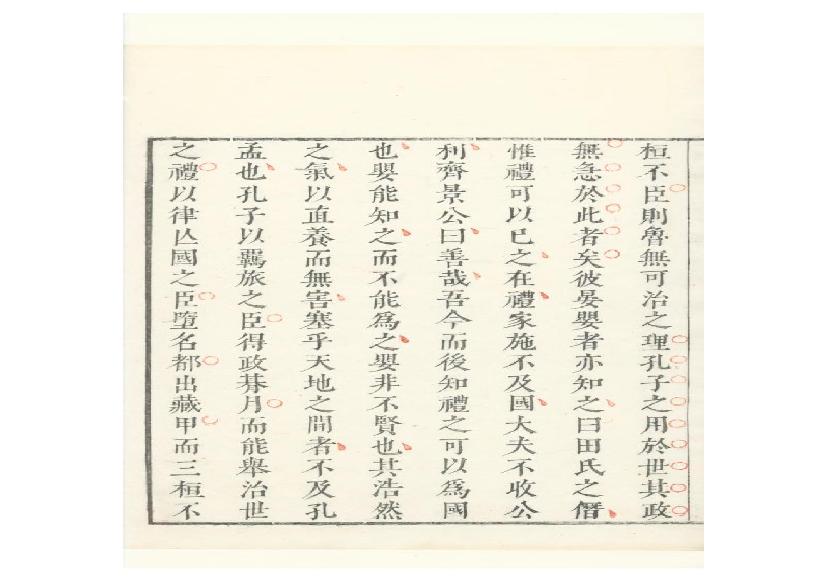 桓不臣則魯無可治之理孔子之用於世其政
無急於此者矣彼晏嬰者亦知之曰田氏之僭
惟禮可以已之在禮家施不及國大夫不收公
利齊景公曰善哉吾今而後知禮之可以為國
也嬰能知之而不能為之嬰非不賢也其浩然
之氣以直養而無害塞乎天地之間者不及孔
孟也孔子以羈旅之臣得政朞月而能舉治世
之禮以律亾國之臣墮名都出藏甲而三桓不